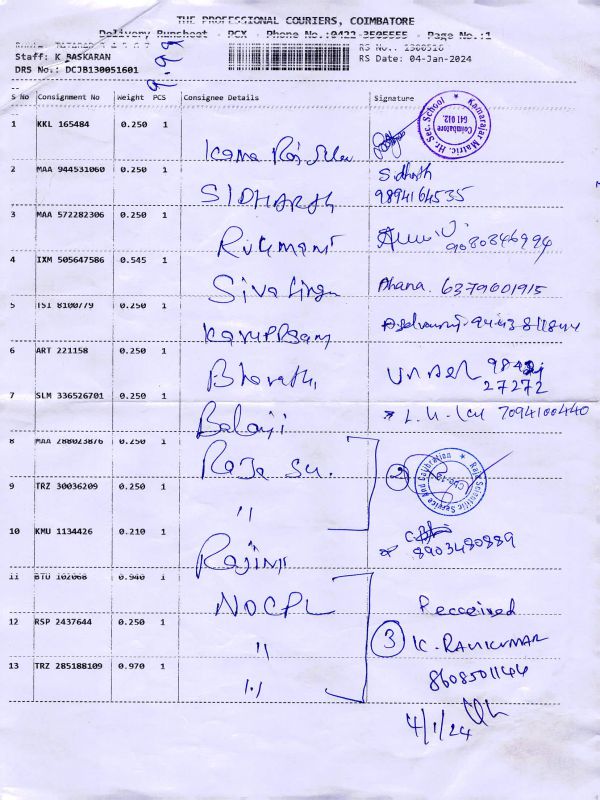 THE PROFESSIONAL COURIERS, COIMBATORE
Delivery Runsheet - PCX - Phone No.:0422-3505555 - Page No.:1
RS No.: 1300516
Staff: K BASKARAN RS Date: 04-Jan-2024
DRS No.: DCJB130051601
9.99
S No Consignment No Weight PCS Consignee Details Signature
1 KKL 165484 0.250 1
Kamarajar Matric. Hr. Sec. School
Coimbatore
641 012.
2 MAA 944531060 0.250 1 SIDHARTH Sidharth
9894164535
3 MAA 572282306 0.250 1 Rukmani 9080846994
4 IXM 505647586 0.545 1 Siva Lingam Dhana. 6379601915
5 TSI 8100779 0.250 1 Karuppasamy
6 ART 221158 0.250 1 Bharathi
27272
7 SLM 336526701 0.250 1 Balaji 7094100440
8 MAA 288023876 0.250 1 Raja Sci. 2
Raja Scientific Service And Calibration
9 TRZ 30036209 0.250 1 "
10 KMU 1134426 0.210 1 Rajini
8903480889
11 BTU 102068 0.940 1 NDCPL Received
12 RSP 2437644 0.250 1 " 3 K. RAVIKUMAR
13 TRZ 285188109 0.970 1 " 8608501144
4/1/24